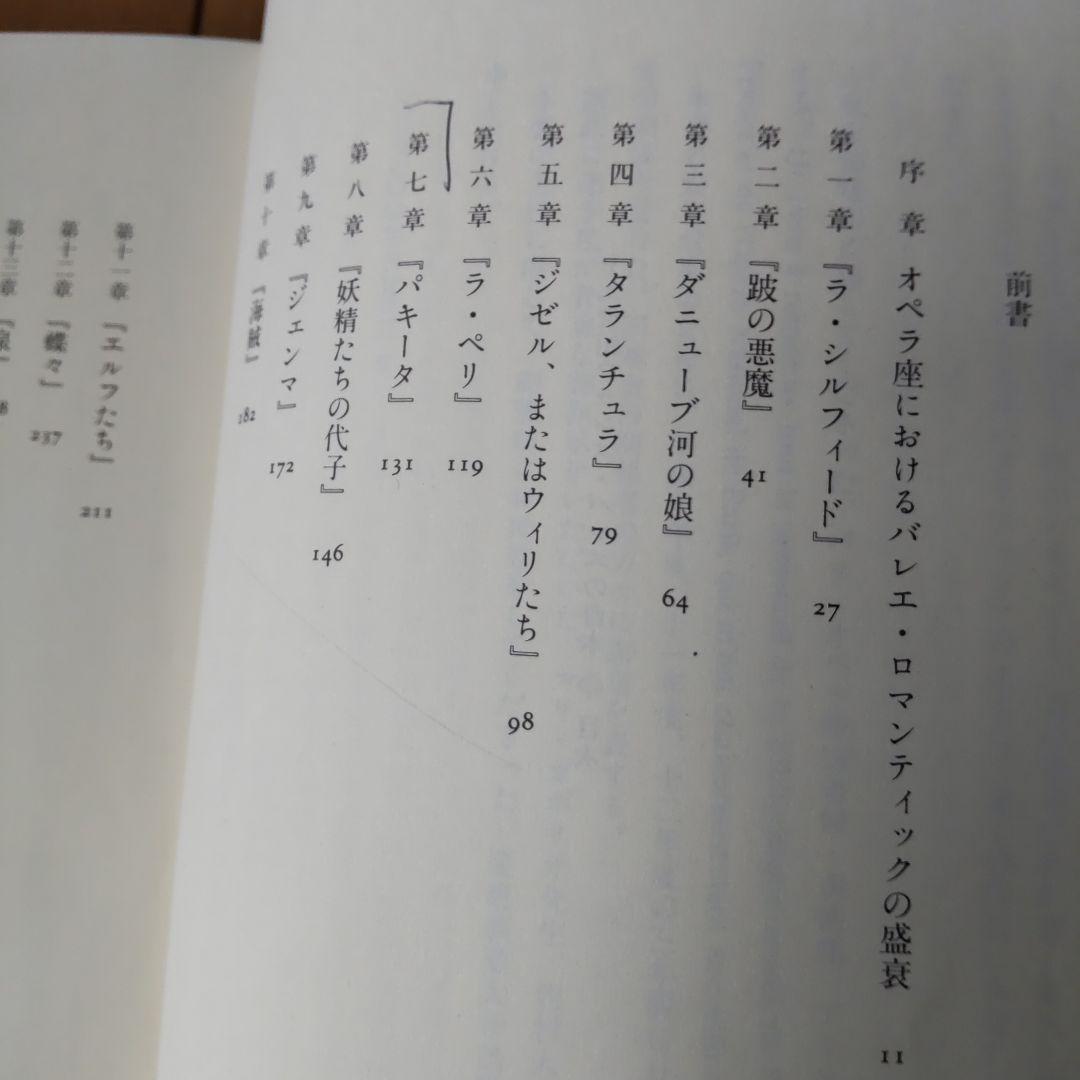 前書
序章 オペラ座におけるバレエ・ロマンティックの盛衰 11
第一章 『ラ・シルフィード』 27
第二章 『跛の悪魔』 41
第三章 『ダニューブ河の娘』 64
第四章 『タランチュラ』 79
第五章 『ジゼル、またはウィリたち』 98
第六章 『ラ・ペリ』 119
第七章 『パキータ』 131
第八章 『妖精たちの代子』 146
第九章 『ジェンマ』 172
第十章 『海賊』 182
第十一章 『エルフたち』 211
第十二章 『蝶々』 237
第十三章